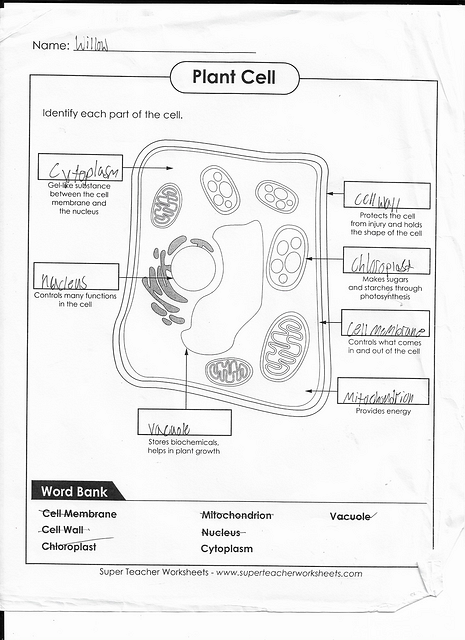 Name: Willow
Plant Cell
Identify each part of the cell.
Cytoplasm
Gel-like substance
between the cell
membrane and
the nucleus
Cell Wall
Protects the cell
from injury and holds
the shape of the cell
chloroplast
Makes sugars
and starches through
photosynthesis
Nucleus
Controls many functions
in the cell
Cell membrane
Controls what comes
in and out of the cell
Mitochondrion
Provides energy
Vacuole
Stores biochemicals,
helps in plant growth
Word Bank
Cell Membrane Mitochondrion Vacuole
Cell Wall Nucleus
Chloroplast Cytoplasm
Super Teacher Worksheets - www.superteacherworksheets.com